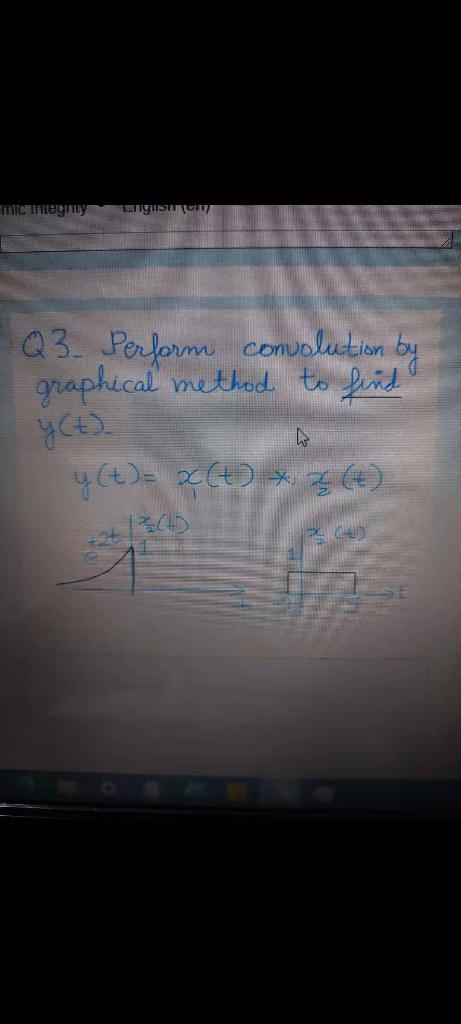 mic Integrity • English (en)
Q3_ Perform convolution by
graphical method to find
y(t)_
y(t) = x₁(t) * x₂(t)
e⁺²ᵗ x₂(t)
1
t
x₂(t)
1
t